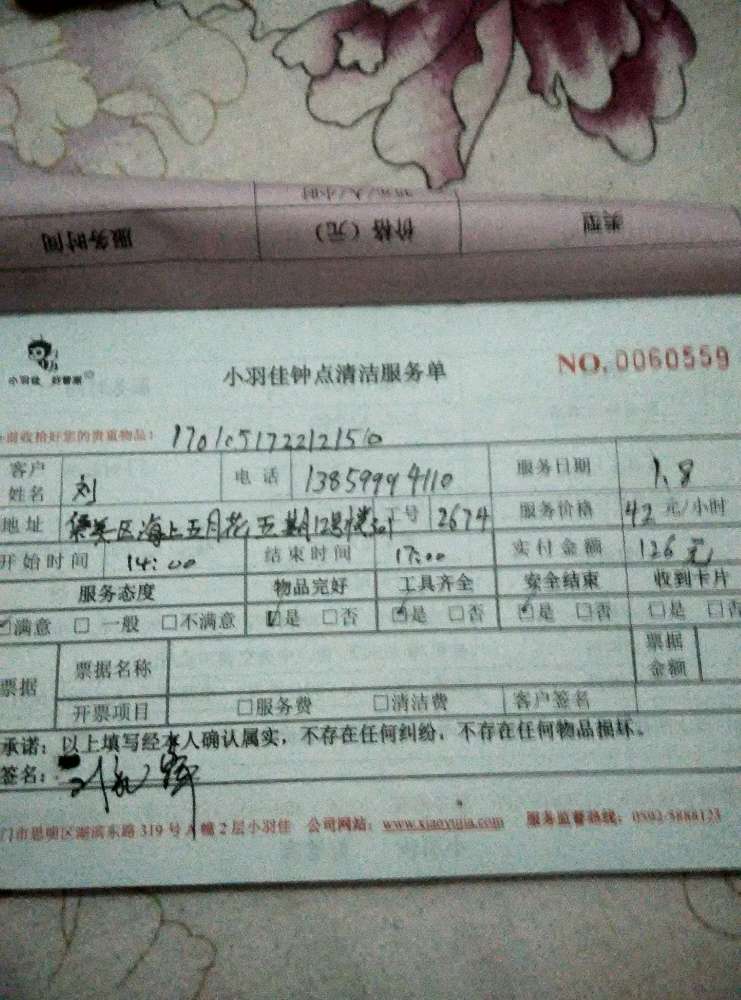 35元/人/小时
类型 价格（元） 服务时间
小羽佳 好管家
小羽佳钟点清洁服务单 NO. 0060559
收拾好您的贵重物品：
客户姓名 刘 电话 服务日期 1.8
地址 海上五月花五期12号楼 工号 2674 服务价格 42 元/小时
开始时间 14:00 结束时间 17:00 实付金额 126元
服务态度 物品完好 工具齐全 安全结束 收到卡片
☑满意 □一般 □不满意 ☑是 □否 ☑是 □否 ☑是 □否 □是 □否
票据 票据名称 票据金额
开票项目 □服务费 □清洁费 客户签名
承诺：以上填写经本人确认属实，不存在任何纠纷，不存在任何物品损坏。
签名：
门市思明区湖滨东路 319 号A幢 2 层小羽佳 公司网站：www.xiaoyujia.com 服务监督热线：0592-5888123